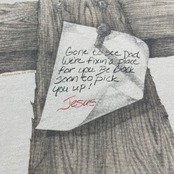 Gone to see Dad
We're fixin a place
for you. Be back
soon to pick
you up!
Jesus